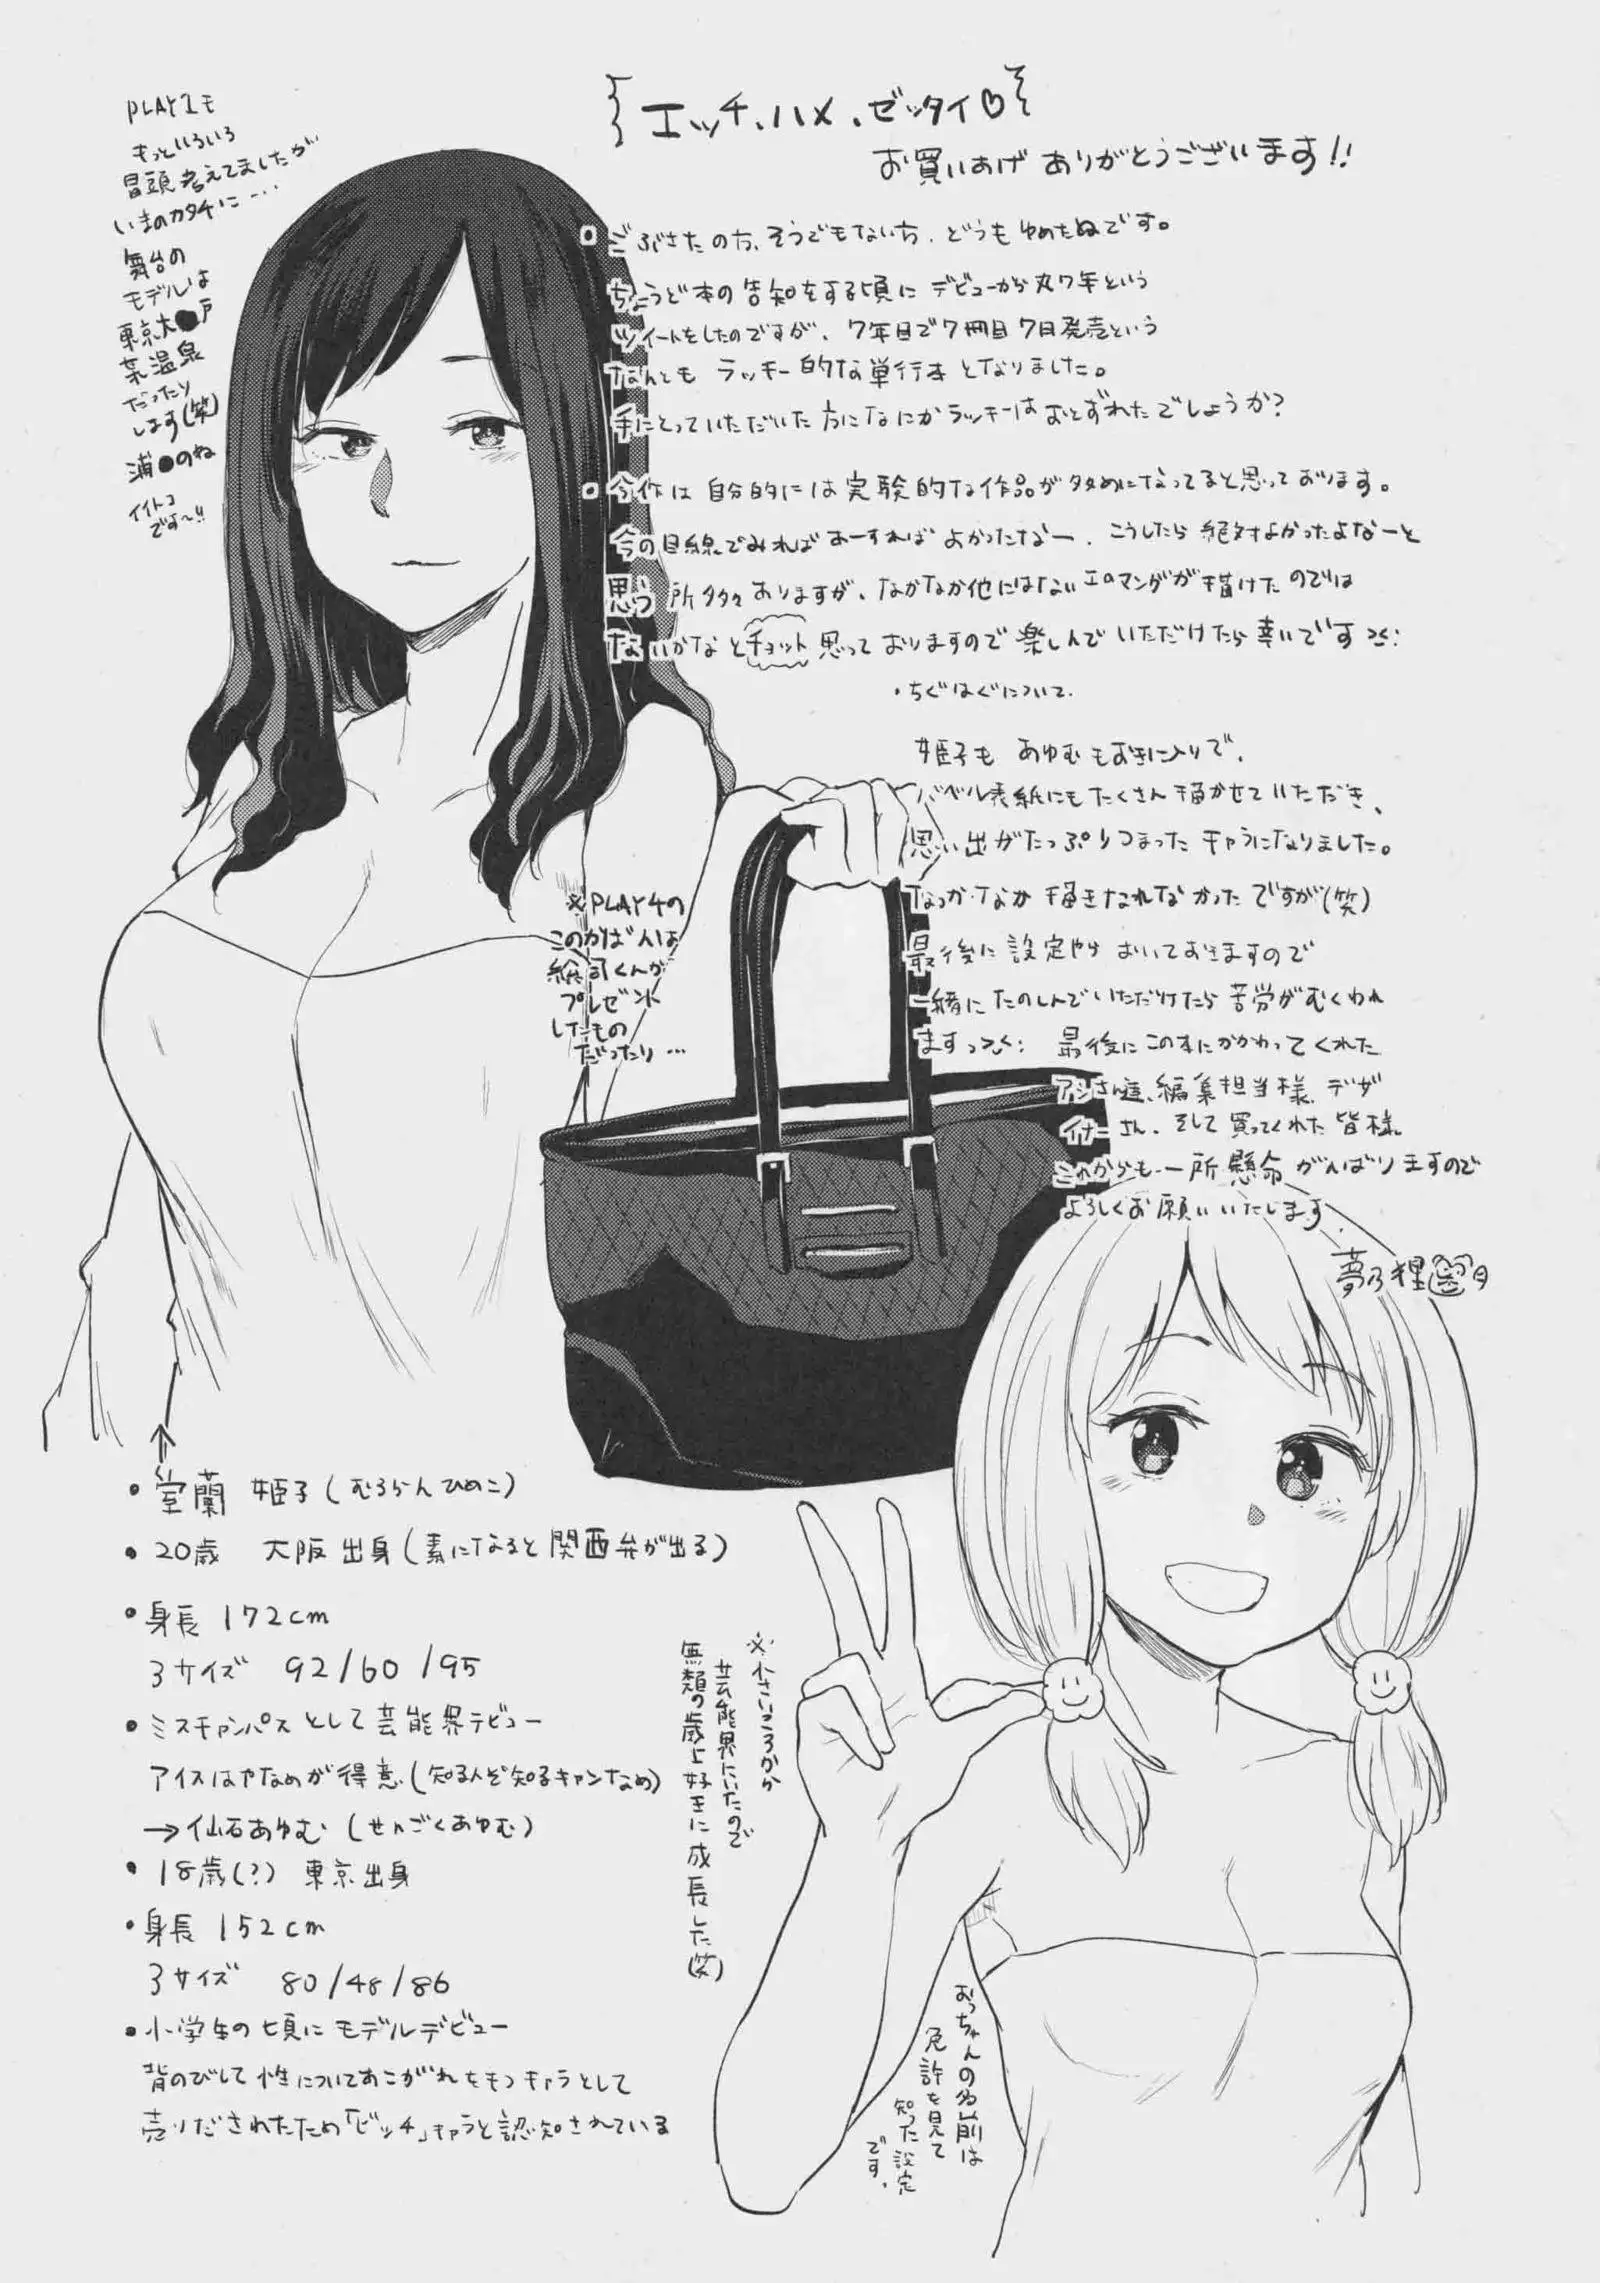 エッチ、ハメ、ゼッタイ♡
お買いあげ ありがとうございます!!
PLAY1も
もっといろいろ
冒頭考えてましたが
いまのカタチに…
舞台の
モデルは
東京大●戸
温泉
だったり
します(笑)
浦●のね
イイトコ
です〜!!
ごぶさたの方、そうでもない方、どうもゆめたぬです。
ちょうど本の告知をする頃に デビューから丸7年という
ツイートをしたのですが、7年目で7冊目7日発売という
なんとも ラッキー的な単行本となりました。
手にとっていただいた方になにかラッキーはおとずれたでしょうか?
今作は 自分的には実験的な作品が多めになってると思っております。
今の目線でみればあーすればよかったなー、こうしたら絶対よかったよなーと
思う所多々ありますが、なかなか他にはないエロマンガが描けたのでは
ないかなとチョット思っておりますので楽しんでいただけたら幸いです
・ちぐはぐについて.
姫子も あゆむもお気に入りで、
バベル表紙にもたくさん描かせていただき、
思い出がたっぷりつまったキャラになりました。
なっかなか描きなれなかったですが(笑)
最後に設定 おいておきますので
一緒にたのしんでいただけたら苦労がむくわれ
ますっ 最後にこの本にかかわってくれた
アシさん達、編集担当様、デザ
イナーさん、そして買ってくれた皆様
これからも一所懸命がんばりますので
よろしくお願いいたします
夢乃狸
※PLAY4の
このかばんは
くんが
プレゼント
したもの
だったり…
・室蘭 姫子(むろらんひめこ)
・20歳 大阪出身(素になると関西弁が出る)
・身長 172cm
3サイズ 92/60/95
・ミスキャンパスとして芸能界デビュー
アイスはやなめが得意(知る人ぞ知るキャンなめ)
→仙石あゆむ(せんごくあゆむ)
・18歳(?) 東京出身
・身長 152cm
3サイズ 80/48/86
・小学生の頃にモデルデビュー
背のびして性についてあこがれをもつキャラとして
売りだされたため「ビッチ」キャラと認知されている
※小さいころから
芸能界にいたので
無類の歳上好きに成長した(笑)
おっちゃんの名前は
免許を見て
知った設定
です。